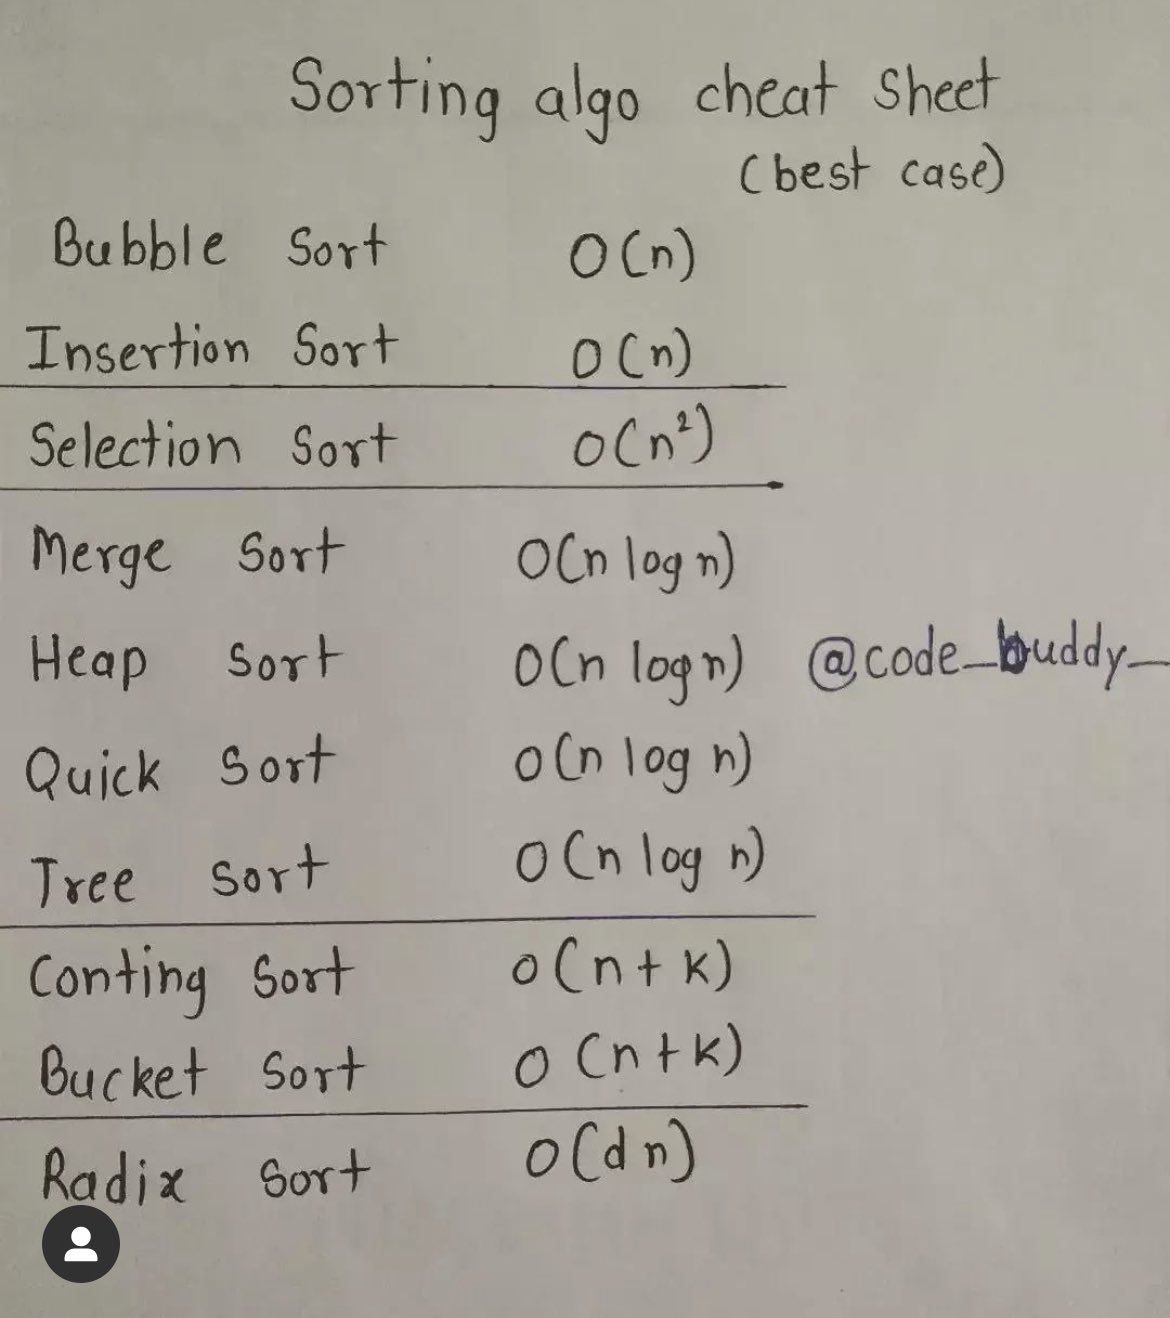 Sorting algo cheat sheet
(best case)
Bubble Sort O(n)
Insertion Sort O(n)
Selection Sort O(n²)
Merge Sort O(n log n)
Heap Sort O(n log n) @code_buddy_
Quick Sort O(n log n)
Tree Sort O(n log n)
Conting Sort O(n+k)
Bucket Sort O(n+k)
Radix Sort O(dn)